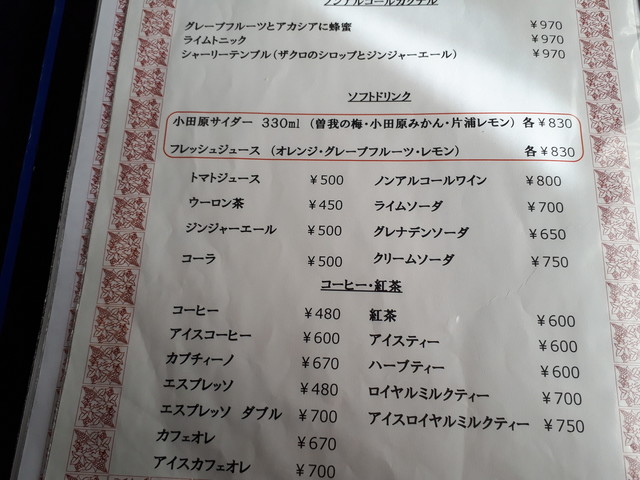 ノンアルコールカクテル
グレープフルーツとアカシアに蜂蜜 ¥970
ライムトニック ¥970
シャーリーテンプル（ザクロのシロップとジンジャーエール） ¥970
ソフトドリンク
小田原サイダー 330ml （曽我の梅・小田原みかん・片浦レモン） 各¥830
フレッシュジュース （オレンジ・グレープフルーツ・レモン） 各¥830
トマトジュース ¥500 ノンアルコールワイン ¥800
ウーロン茶 ¥450 ライムソーダ ¥700
ジンジャーエール ¥500 グレナデンソーダ ¥650
コーラ ¥500 クリームソーダ ¥750
コーヒー・紅茶
コーヒー ¥480 紅茶 ¥600
アイスコーヒー ¥600 アイスティー ¥600
カプチィーノ ¥670 ハーブティー ¥600
エスプレッソ ¥480 ロイヤルミルクティー ¥700
エスプレッソ ダブル ¥700 アイスロイヤルミルクティー ¥750
カフェオレ ¥670
アイスカフェオレ ¥700